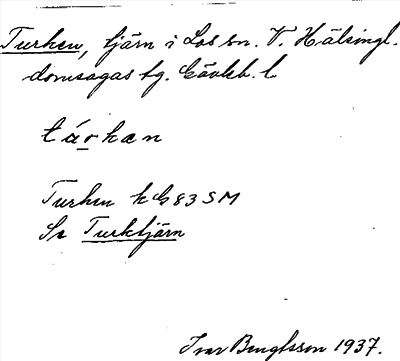 Turken, tjärn i Los sn. V. Hälsingl.
domsagas tg. Gävleb. l.
tárkan
Turken k G 83 SM
Se Turktjärn
Ivar Bengtsson 1937.